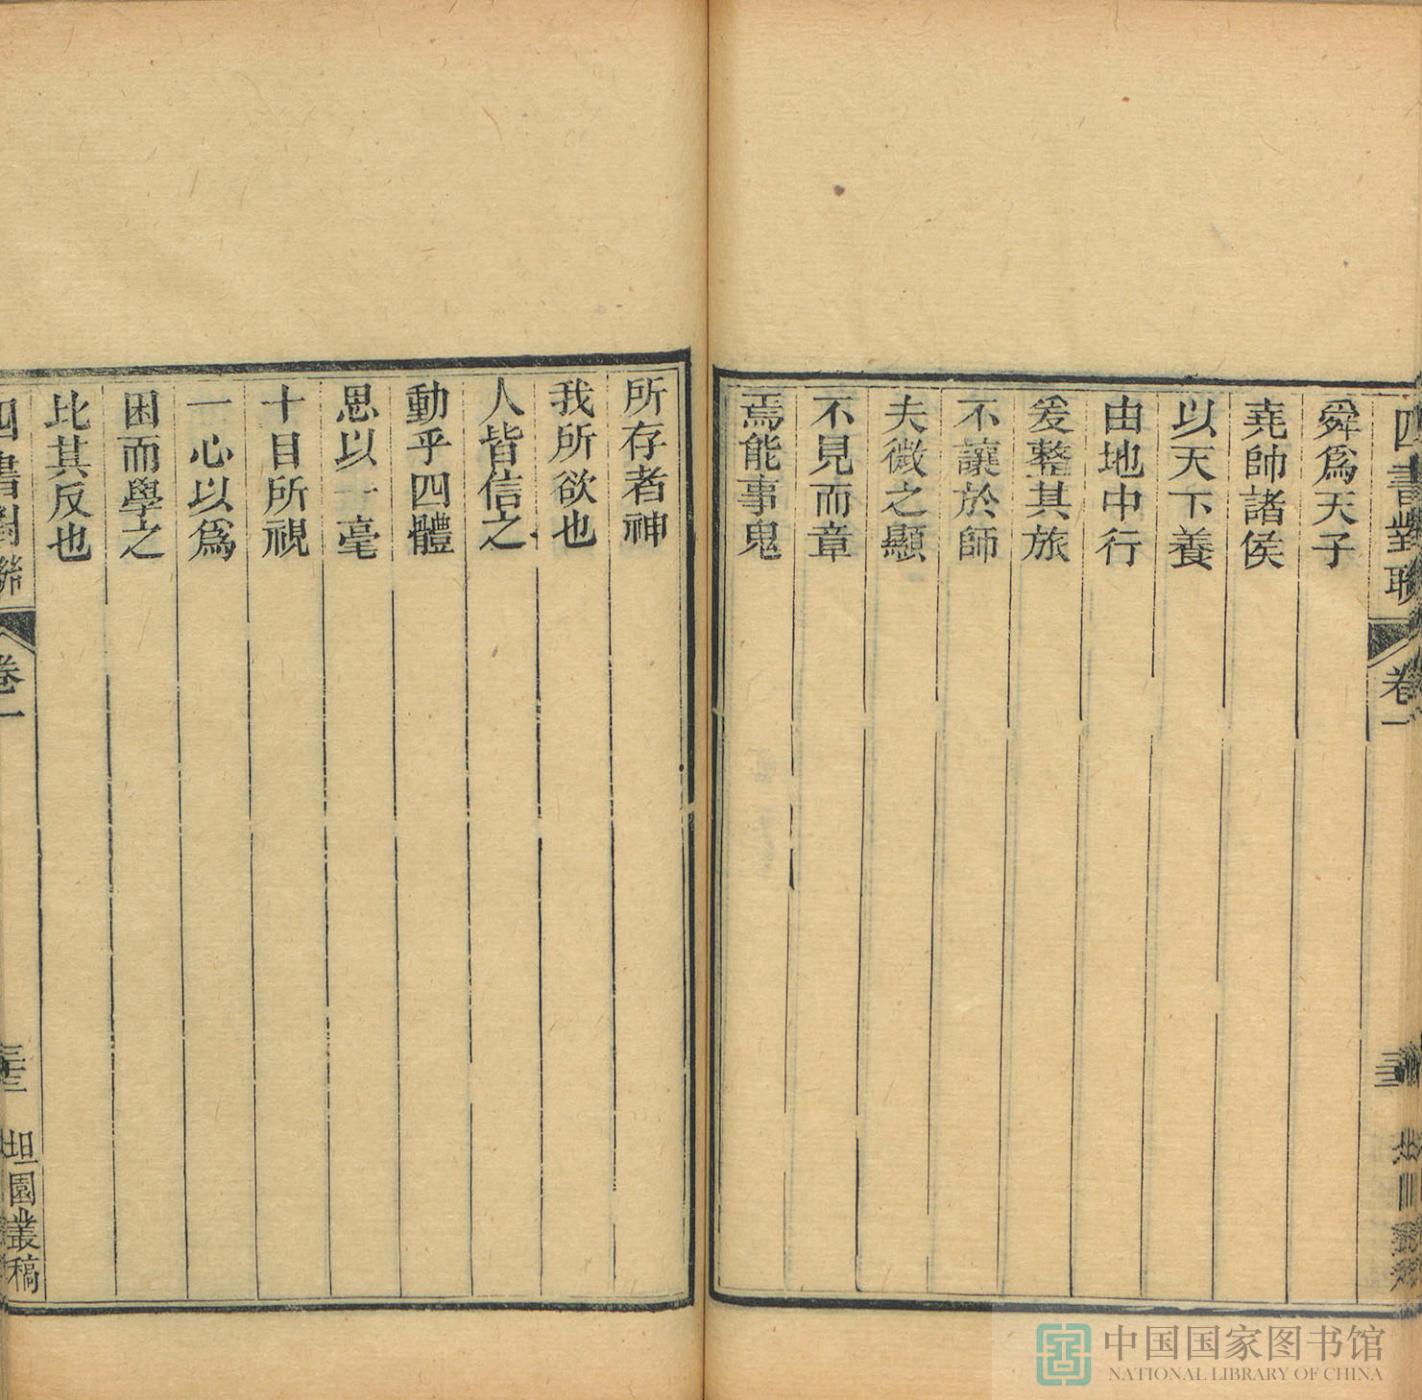 四書對聯 卷一
舜爲天子
堯帥諸侯
以天下養
由地中行
爰整其旅
不讓於師
夫微之顯
不見而章
焉能事鬼
所存者神
我所欲也
人皆信之
動乎四體
思以一毫
十目所視
一心以爲
困而學之
比其反也
四書對聯 卷一 坦園叢稿
中国国家图书馆
NATIONAL LIBRARY OF CHINA